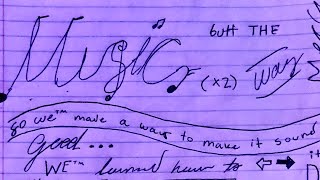 butt THE
Music
(x2) way
so we™ made a way to make it sound
good...
WE™ learned how to